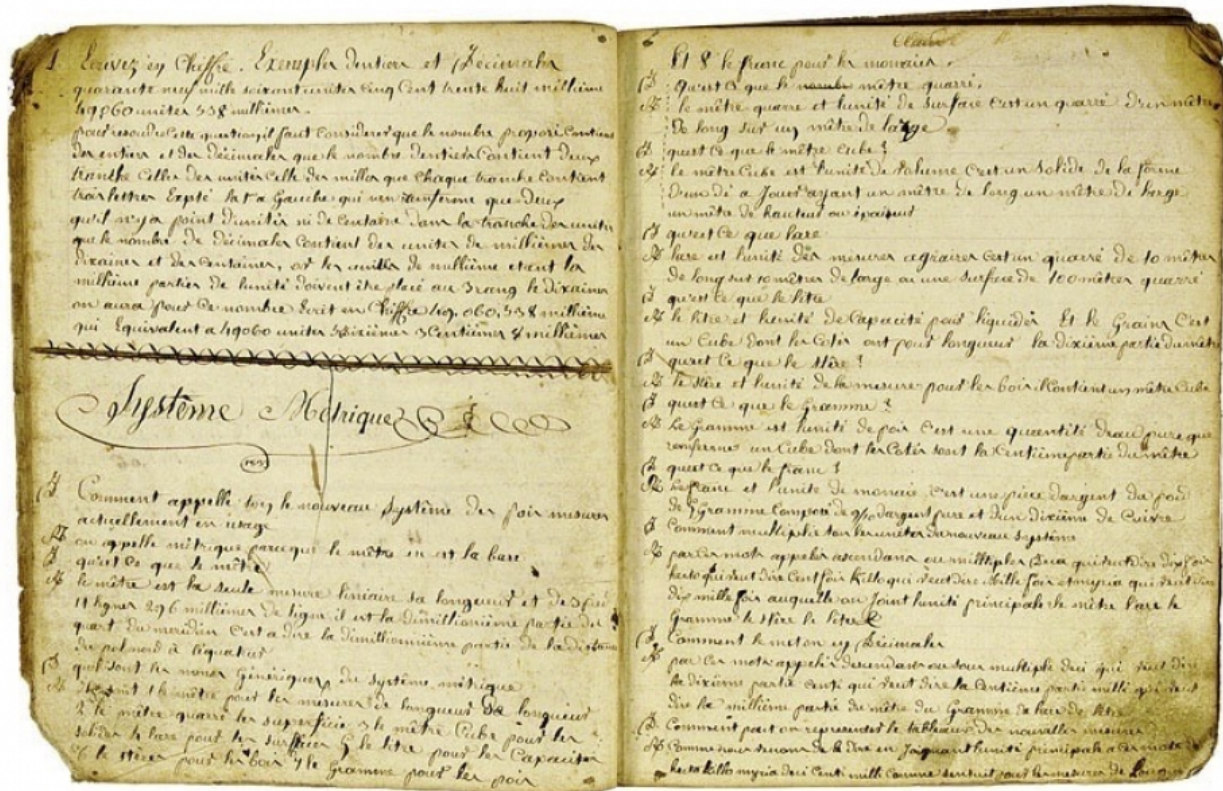 1 Ecrivez en Chiffre. Exemples dentiers et Décimales
quarante neuf mille soixant unites cinq Cent trente huit millième
49060 unites 538 millièmes.
pour resoudre Cette question, il faut considerer que le nombre proposé Contient
des entiers et des décimales que le nombre dentiers Contient deux
tranche Celles des unites Celle des milles que chaque tranche Contient
trois lettres Exepté la 1 a Gauche qui nen renferme que deux
quil ny a point dunités ni de Centaine dans la tranche des unites
que le nombre de décimales Contient des unites de millièmes des
dixaines et des Centaines, or les unites de millième etant les
millième parties de lunité doivent être placé au 3 rang la dixaines
on aura pour Ce nombre Ecrit en Chiffre 49,060,538 millième
qui Equivalent a 49060 unites 5 dixièmes 3 Centièmes 8 millièmes
Système Métrique
D Comment appelle ton le nouveau Système des pois mesures
actuellement en usage
R on appelle métrique parceque le mètre en est la base
D quest Ce que le mètre
R le mètre est la seule mesure lineaire sa longueur et de 3 pié
11 lignes 296 millièmes de ligne il est la dimillionième partie du
quart du meridien Cest a dire la dimillionnième partie de la distance
du pol nord à léquateur
D quels sont les noms Génériques du système métrique
R Se sont 1 le mètre pour les mesures de longueur
2 le mètre quarré les superficie 3 le mètre Cube pour les
solides 4 lare pour les surfaces 5 le litre pour les Capacites
6 le stère pour les bois 7 le Gramme pour les pois
Et 8 le franc pour les monaies.
D Quest Ce que le mètre quarré.
R le mètre quarré et lunité de surface Cest un quarré dun mètre
de long sur un mètre de large
D quest Ce que le mètre Cube ?
R le mètre Cube est lunité de volume Cest un solide de la forme
dun dé a Jouer ayant un mètre de long un mètre de large
un mètre de hauteur ou épaiseur
D quest Ce que lare
R lare et lunité des mesures agraires Cest un quarré de 10 mètres
de long sur 10 mètres de large ou une surface de 100 mètres quarré
D quest Ce que le litre
R le litre et lunité de Capacité pour liquides Et le Grains Cest
un Cube dont les Cotés ont pour longueur la dixième partie du mètre
D quest Ce que le stère ?
R le stère et lunité de la mesure pour les bois il Contient un mètre Cube
D quest Ce que le Gramme ?
R Le Gramme est lunité de pois Cest une quantité deau pure que
renferme un Cube dont les Cotés sont la Centième partie du mètre
D quest Ce que le franc ?
R Le franc et l'unité de monaie Cest une pièce dargent du poid
de 5 Gramme Composé de 9/10 dargent pure et dun dixième de Cuivre
D Comment multiplie ton les unites du nouveau Système
R par Ces mots appelés ascendans ou multiples Deca qui veut dire dix fois
hecto qui veut dire Cent fois Killo qui veut dire Mille fois et myria qui veut dire
dix mille fois auquelle on Joint lunité principale le mètre lare le
Gramme le stère le litre
D Comment le met on en Décimales
R par Ces mots appelés desendans ou sous multiple deci qui veut dire
la dixième partie centi qui veut dire la Centième partie milli qui veut
dire la millième partie du mètre du Gramme de lare du litre
D Comment peut on representer le tableau des nouvelles mesures
R Comme nous venons de le dire en Joignant lunité principale a Ces mots
hecto killo myria deci Centi milli Comme sensuit pour les mesures de Longueur